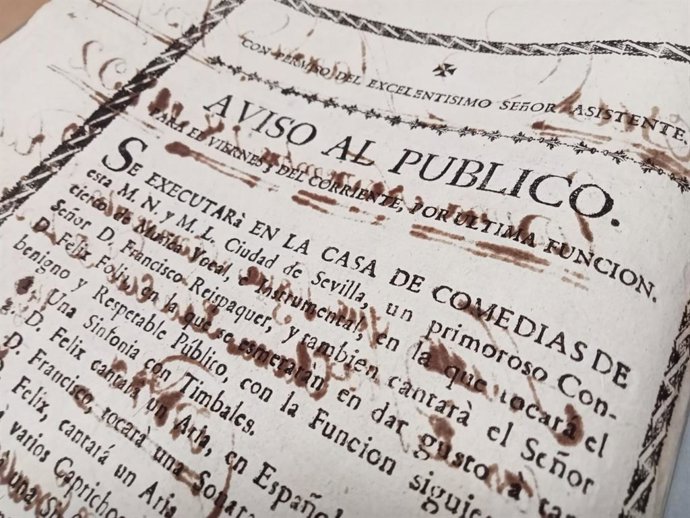 CON PERMISO DEL EXCELENTISIMO SEÑOR ASISTENTE.
AVISO AL PUBLICO.
PARA EL VIERNES 3 DEL CORRIENTE, POR ULTIMA FUNCION.
SE EXECUTARà EN LA CASA DE COMEDIAS DE
esta M. N. y M. L. Ciudad de Sevilla, un primoroso Con-
cierto de Musica Vocal, è Instrumental, en la que tocarà el
Señor D. Francisco Reispaquer, y tambien cantarà el Señor
D. Felix Folis, en la que se esmeraràn en dar gusto à
benigno y Respetable Público, con la Funcion
Una Sinfonia con Timbales.
D. Felix cantarà un Aria, en
D. Francisco, tocarà una
Felix, cantarà un Aria
varios
una